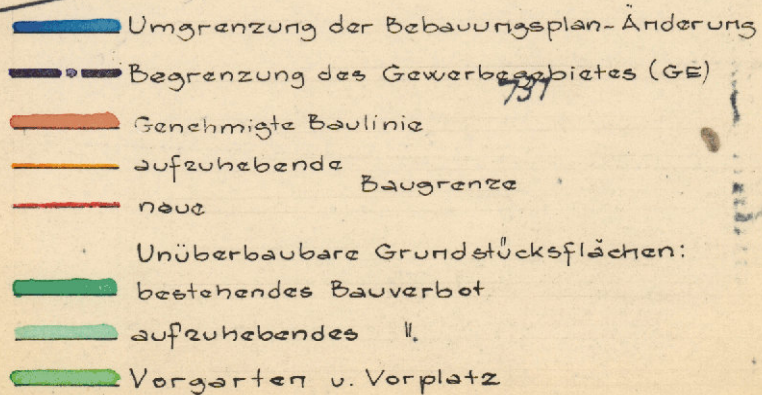 Umgrenzung der Bebauungsplan-Änderung
Begrenzung des Gewerbegebietes (GE)
737
Genehmigte Baulinie
aufzuhebende
Baugrenze
neue
Unüberbaubare Grundstücksflächen:
bestehendes Bauverbot
aufzuhebendes ".
Vorgarten u. Vorplatz